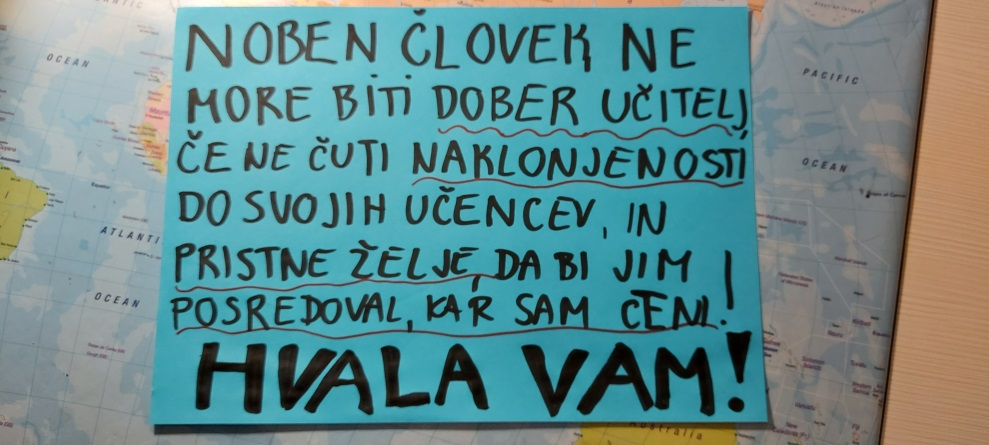 NOBEN ČLOVEK NE
MORE BITI DOBER UČITELJ,
ČE NE ČUTI NAKLONJENOSTI
DO SVOJIH UČENCEV, IN
PRISTNE ŽELJE, DA BI JIM
POSREDOVAL, KAR SAM CENI!
HVALA VAM!
OCEAN
ATLANTI
OCEAN
PACIFIC
OCEAN
Australia